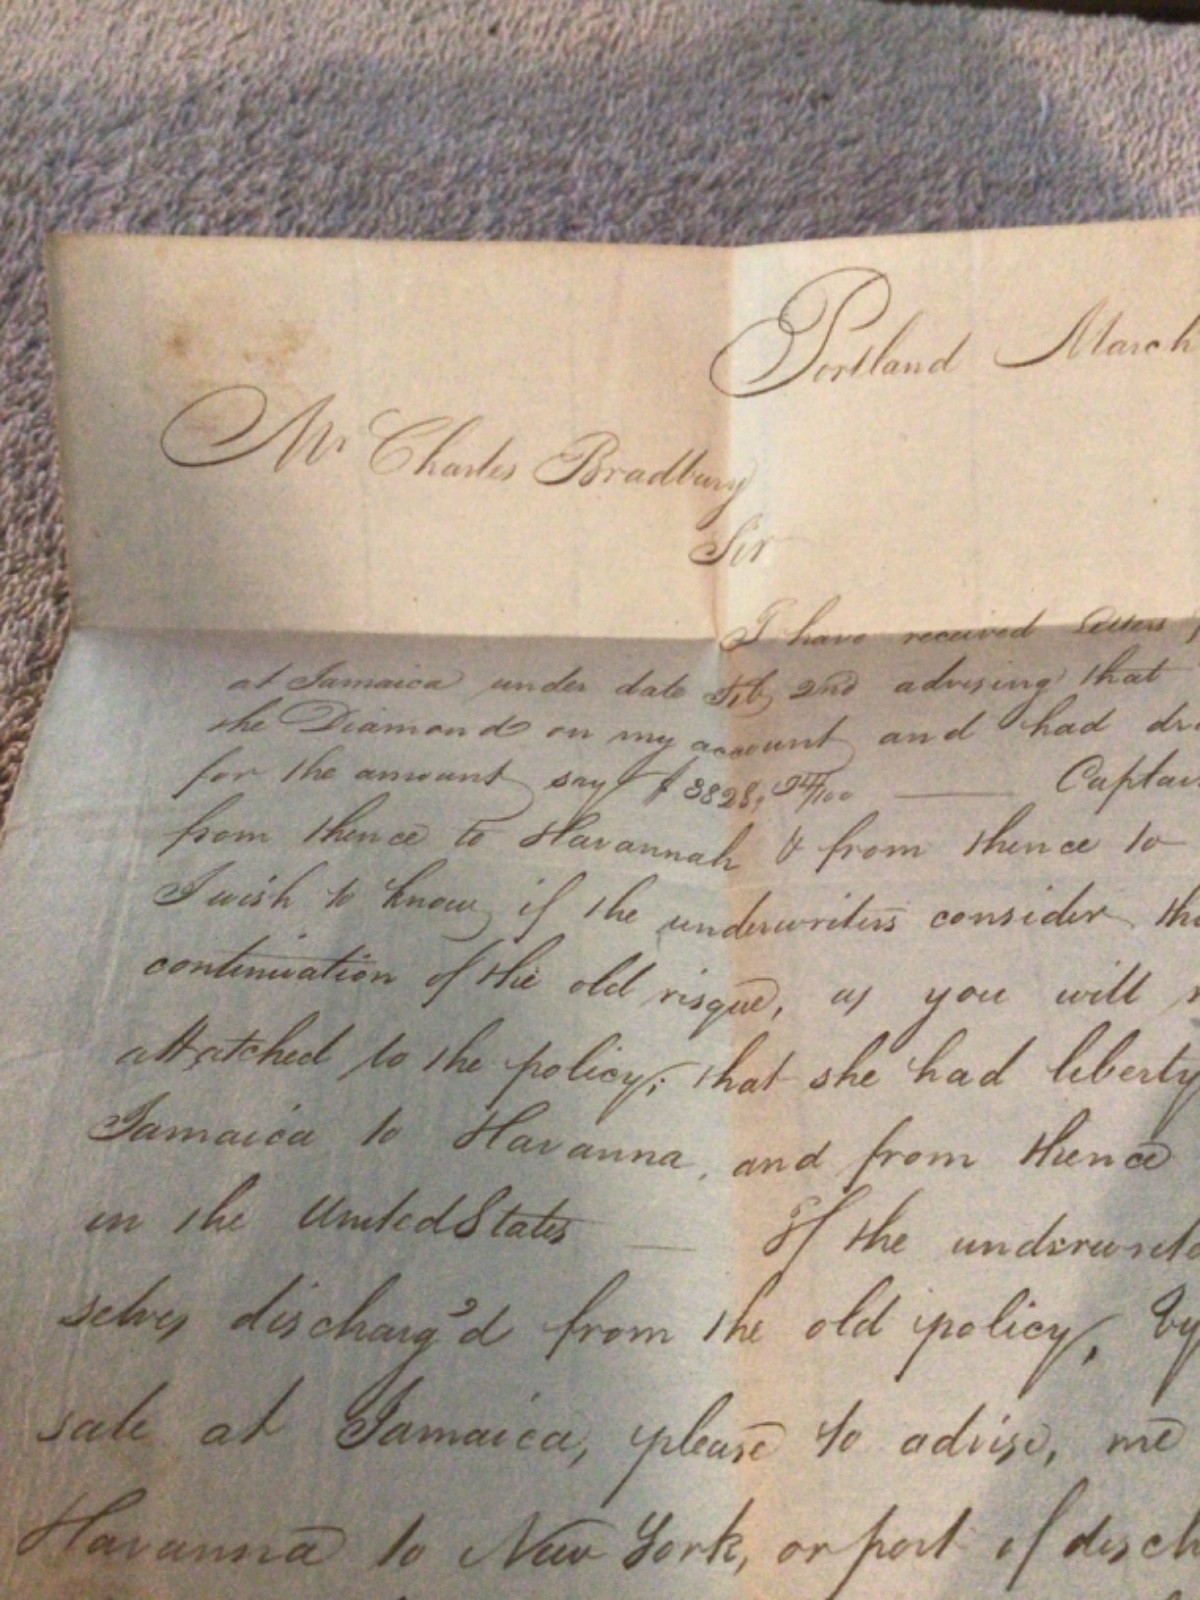 Portland March
Mr Charles Bradbury
Sir
I have received Letters
at Jamaica under date Feb 2nd advising that
the Diamond on my account and had
for the amount say $ 3828, 24/100 — Captai
from thence to Havannah & from thence to
I wish to know if the underwriters consider th
continuation of the old risque, as you will
attatched to the policy; that she had liberty
Jamaica to Havanna, and from thence
in the United States — If the underwrite
selves discharg'd from the old policy, by
sale at Jamaica, please to advise, me
Havanna to New York, or port of disch